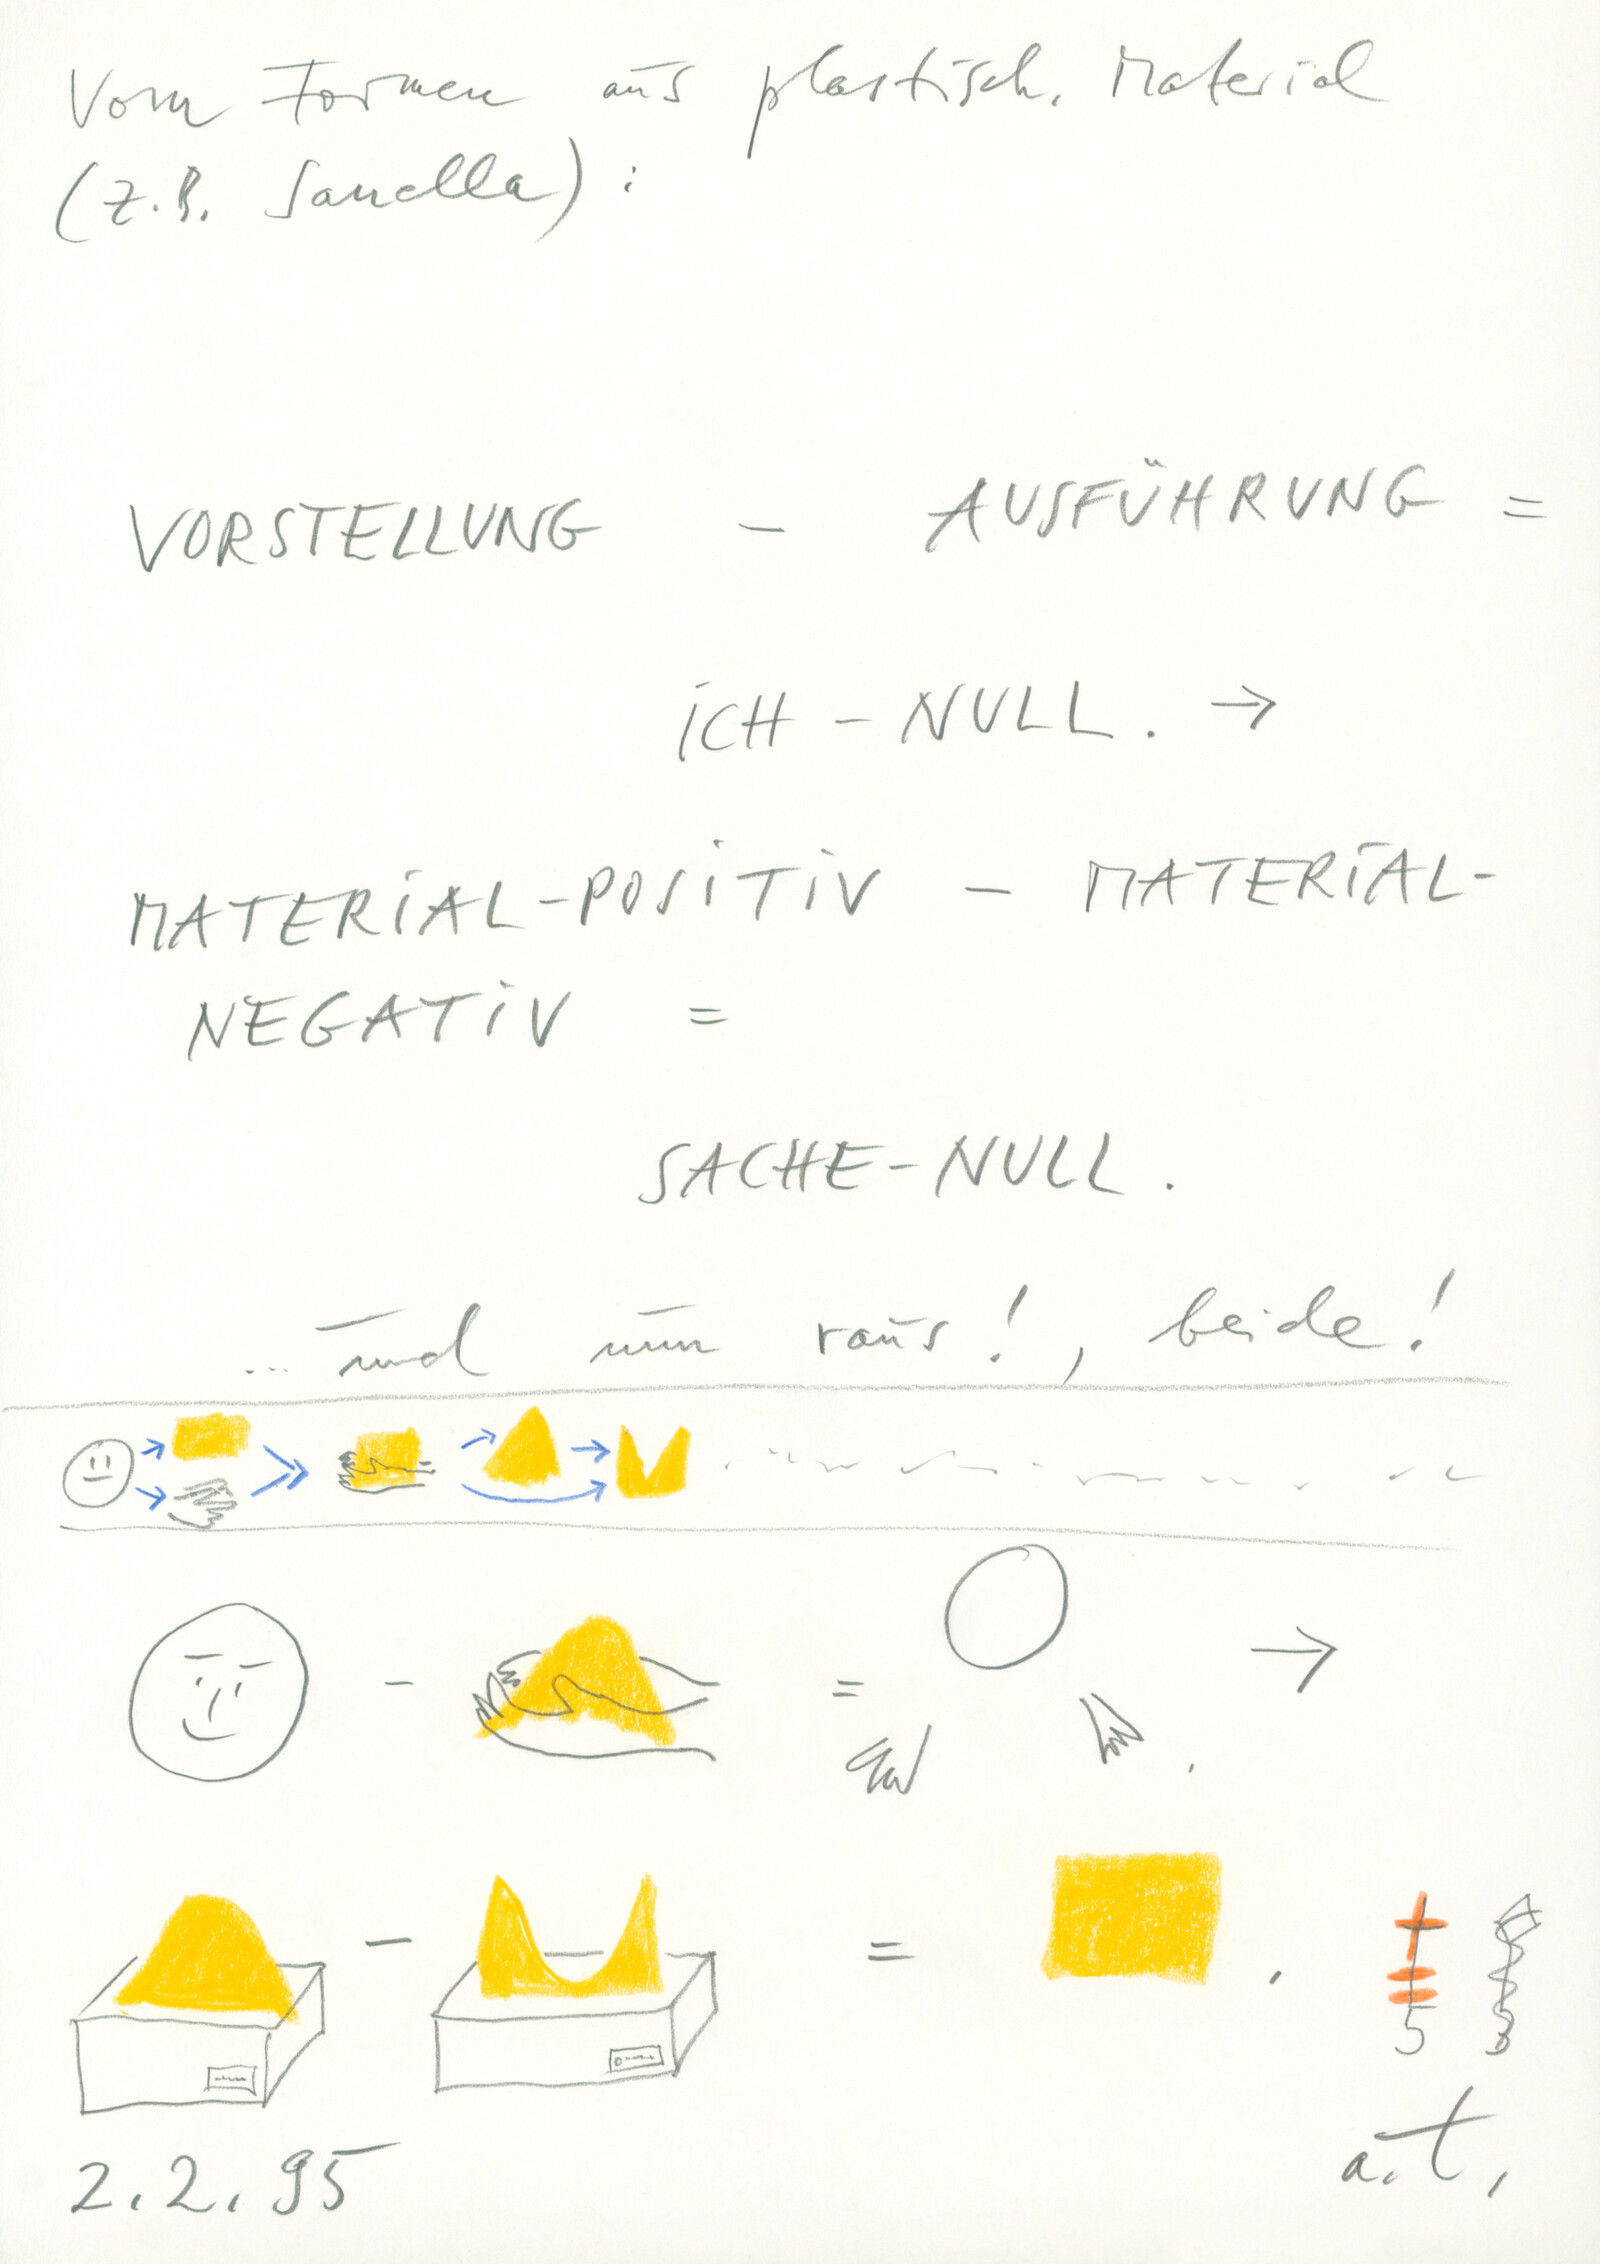 Vom Formen aus plastisch. Material
(z.B. Sanella):
VORSTELLUNG – AUSFÜHRUNG =
ICH – NULL. →
MATERIAL-POSITIV – MATERIAL-
NEGATIV =
SACHE-NULL.
... und nun raus!, beide!
2.2.95
a.t.